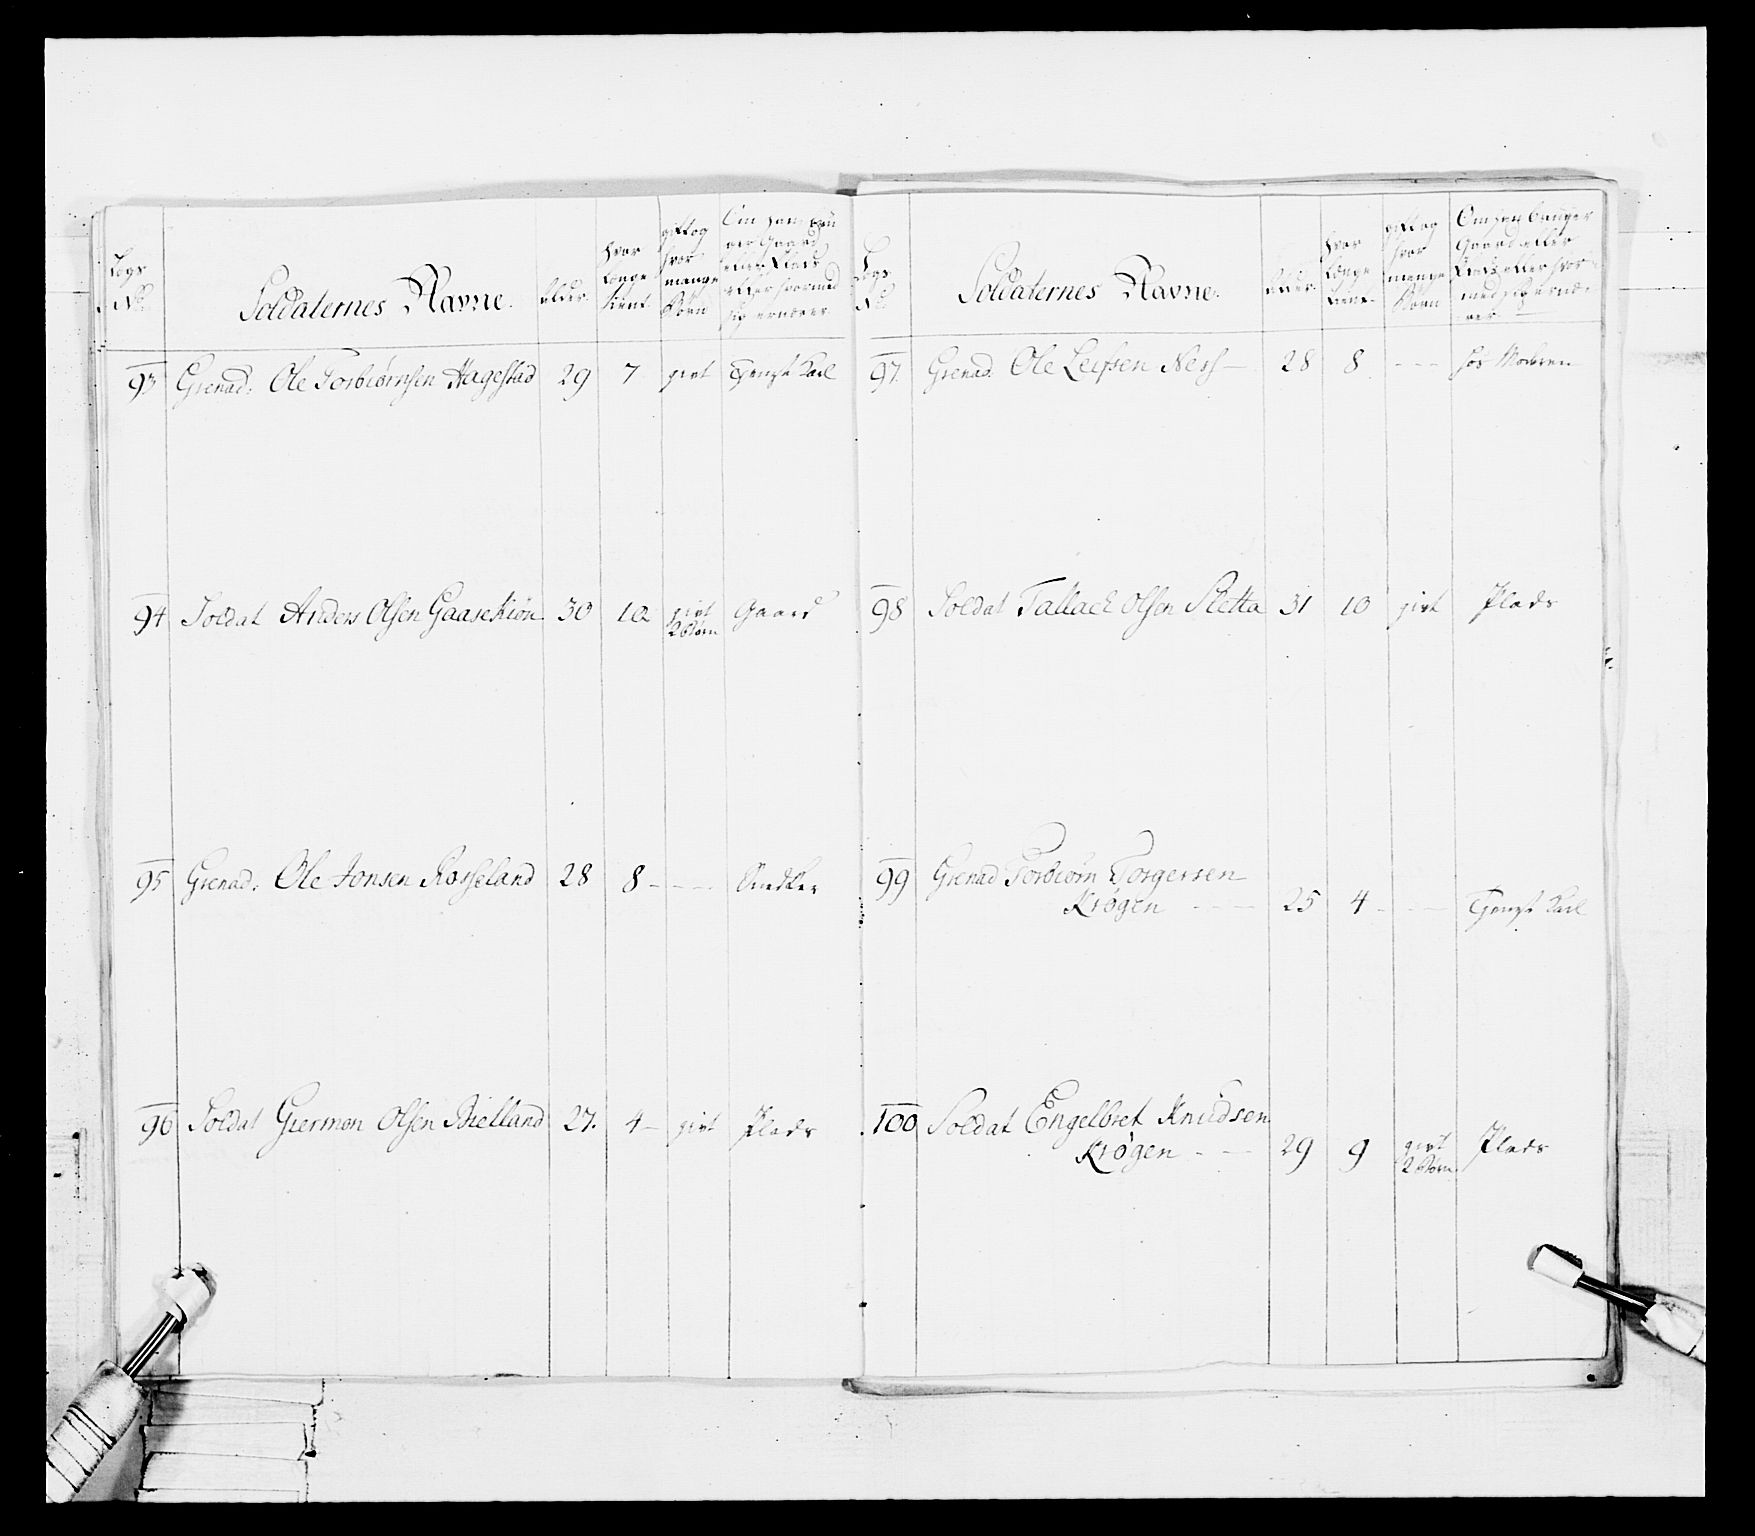 Legs No. Soldaternes Navne. Alder. hvor længe tient. gift og hvor mange Børn Om han bruger Gaard eller Plads eller hvormed sig ernærer
93 Grenad: Ole Torbiørnsen Hagestad 29 7 givt Tjenst Karl
94 Soldat Anders Olsen Gaasekiøn 30 10 givt 2 Børn Gaard
95 Grenad: Ole Jonsen Rosseland 28 8 - - - - Snedker
96 Soldat Giermon Olsen Bielland 27. 4 - givt Plads
Legs No. Soldaternes Navne. Alder. hvor længe tient. gift og hvor mange Børn Om han bruger Gaard eller Plads eller hvormed sig ernærer
97. Grenad. Ole Leifsen Ness - 28 8 - - - hos Moderen
98 Soldat Tallack Olsen Sletta 31 10 givt Plads
99 Grenad Torbiørn Torgersen
Krøgen - - - 25 4 - - - Tjenst Karl
100 Soldat Engelbret Knudsen
Krøgen - - 29 9 givt 2 Børn Plads